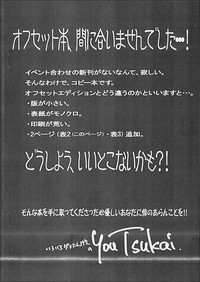 オフセット本、間に合いませんでした…!
イベント合わせの新刊がないなんて、寂しい。
そんなわけで、コピー本です。
オフセットエディションとどう違うのかといいますと…。
・版が小さい。
・表紙がモノクロ。
・印刷が荒い。
・2ページ(表2(このページ)・表3)追加。
どうしよう、いいとこないかも?!
そんな本を手に取ってくださった心優しいあなたに倖のあらんことを!!
You Tsukai.